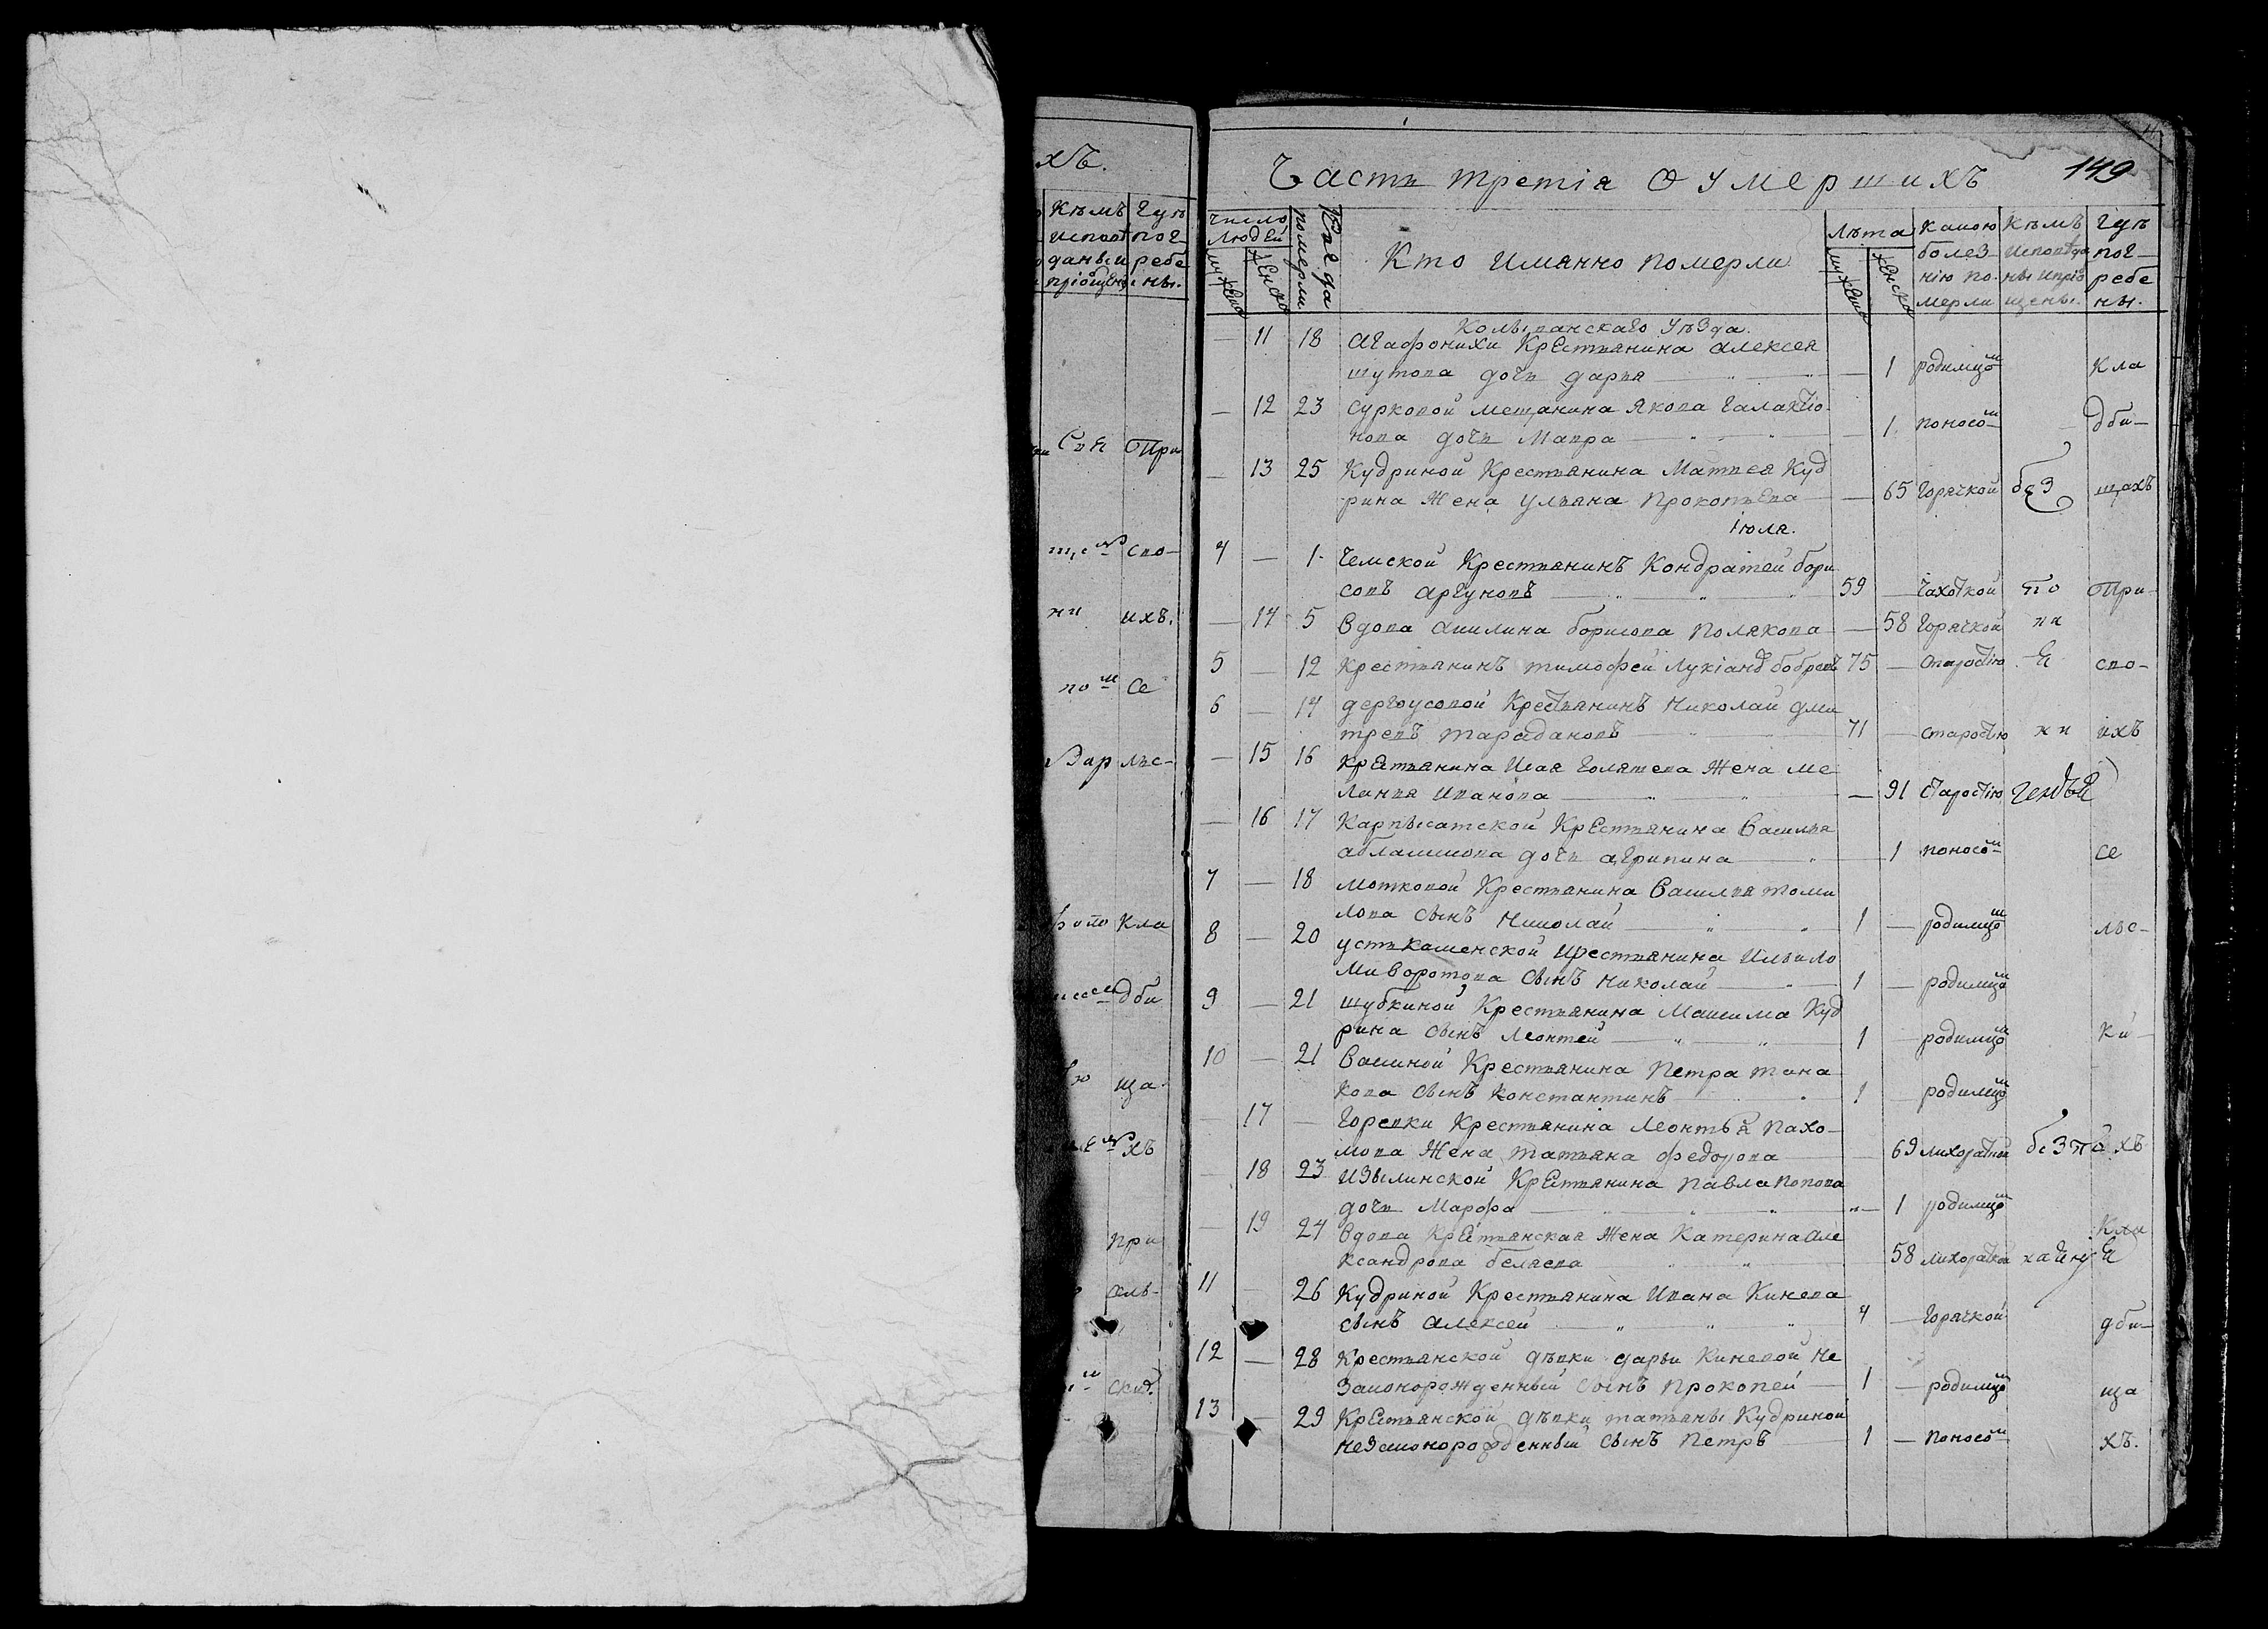 хъ.
Кѣмъ Гдѣ
испов пог-
даны и ребе
пріобщен ны.
Свя При
спо-
ни ихъ.
Се
льс-
Кла
дби
ща-
хъ
при
скид.
149
Часть третія о умершихъ
число людей
мужеска
женска
Когда померли
Кто имянно померли
лѣта
мужеска
женска
какою болез-
нію по-
мерли
кѣмъ
исповѣда
ны и пріоб
щены.
Гдѣ
пог-
ребе
ны.
Колыванскаго уѣзда.
— 11 18 Агафонихи Крестьянина Алексея
Шутова дочь Дарья — 1 родимцом Кла
— 12 23 Сурковой мещанина Якова Галактіо-
нова дочь Мавра — 1 поносом дби-
— 13 25 Кудриной Крестьянина Матвея Куд
рина Жена Ульяна Прокопьева — 65 Горячкой без щахъ
Іюля.
4 — 1 Чемской Крестьянинъ Кондратей Бори
совъ Аргуновъ 59 — Чахоткой При-
— 14 5 Вдова Акилина Борисова Полякова — 58 Горячкой
5 — 12 Крестьянинъ Тимофей Лукіанов Бобровъ 75 — старостію спо-
6 — 14 Дергоусовой Крестьянинъ Николай Дми
тревъ Тарадановъ 71 — старостію ихъ
— 15 16 Крестьянина Исая Голятева Жена Ме
ланья Иванова — 91 старостію
— 16 17 Карпысатской Крестьянина Василья
дочь Агрипина — 1 поносом Се
7 — 18 Мотковой Крестьянина Василья Томи
лова сынъ Николай 1 — родимцом льс-
8 — 20 Устькаменской Крестьянина
Воротова сынъ Николай 1 — родимцом
9 — 21 Шубкиной Крестьянина Максима Куд
рина сынъ Леонтей 1 — родимцом ки-
10 — 21 Васиной Крестьянина Петра Тана
кова сынъ Константинъ 1 — родимцом
— 17 — Горевки Крестьянина Леонтья Пахо-
мова Жена Татьяна Федорова — 69 лихораткой хъ
— 18 23 Изылинской Крестьянина Павла Попова
дочь Марфа — 1 родимцом
— 19 24 Вдова Крестьянская Жена Катерина Але
ксандрова Беляева 58 лихораткой Кла
11 — 26 Кудриной Крестьянина Ивана Кинева
сынъ Алексей 4 — Горячкой дби-
12 — 28 Крестьянской дѣвки Дарьи Киневой не
законорожденный сынъ Прокопей 1 — родимцом ща
13 — 29 Крестьянской дѣвки Татьяны Кудриной
незаконорожденный сынъ Петръ 1 — поносом хъ.